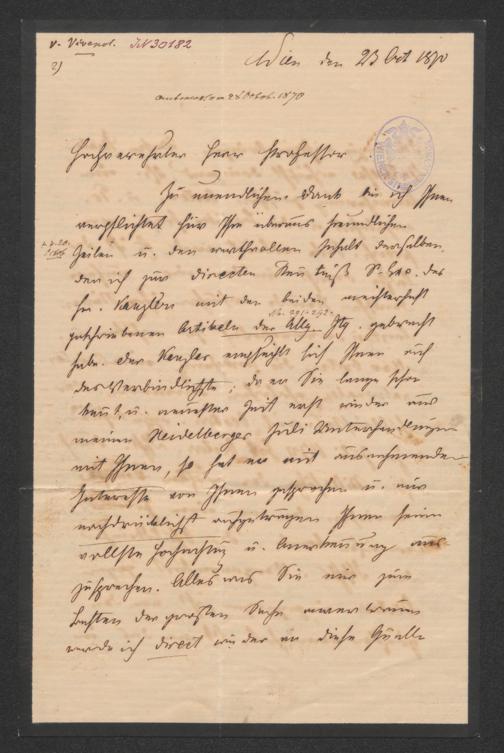 v. Vivenot. IN 30182
2)
Wien den 23 Oct 1870
Hochverehrter Herr Professor
Zu unendlichem Dank bin ich Ihnen
verpflichtet für Ihre überaus freundlichen
Zeilen u. den werthvollen Inhalt derselben,
den ich zur directen Kenntniß Sr. Exc. des
Hn. Kanzlers mit den beiden meisterhaft
No. 291-292.
geschriebenen Artikeln der Allg. Ztg. gebracht
habe. Der Kanzler empfiehlt sich Ihnen auf
das Verbindlichste; da er Sie lange schon
kennt, u. neuester Zeit erst wieder aus
meinen Heidelberger Juli Unterhandlungen
mit Ihnen, so hat er mit ausnehmendem
Interesse von Ihnen gesprochen u. mir
nachdrücklichst aufgetragen Ihnen seine
vollste Hochachtung u. Anerkennung aus-
zusprechen. Alles was Sie mir zum
Besten der großen Sache
werde ich direct wieder an diese Quelle